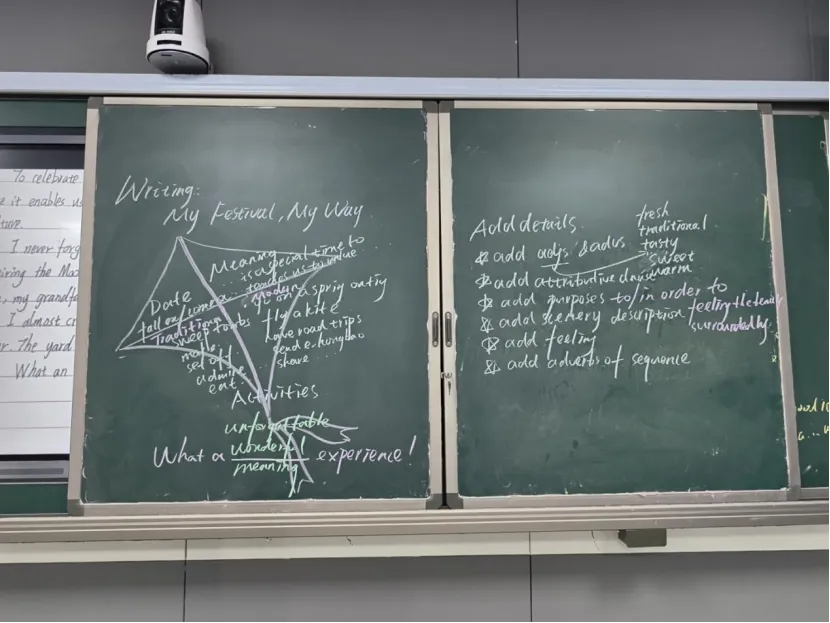 To celebrate
e it enables us
ture.
I never forg
iring the
my grandfa
I almost cr
r. The yard
What an
Writing:
My Festival, My Way
Meaning
is a special time to
teaches us to value
Date
fall on
Traditional
sweep tombs
set off
admire
eat
Modern
go on a spring outing
fly a kite
have road trips
send e-hongbao
share
Activities
unforgettable
What a wonderful experience!
meaning
Add details
add adjs & advs
fresh
traditional
tasty
sweet
warm
add attributive clause
add purposes to/in order to
add scenery description
feeling the
surrounded by
add feeling
add adverbs of sequence